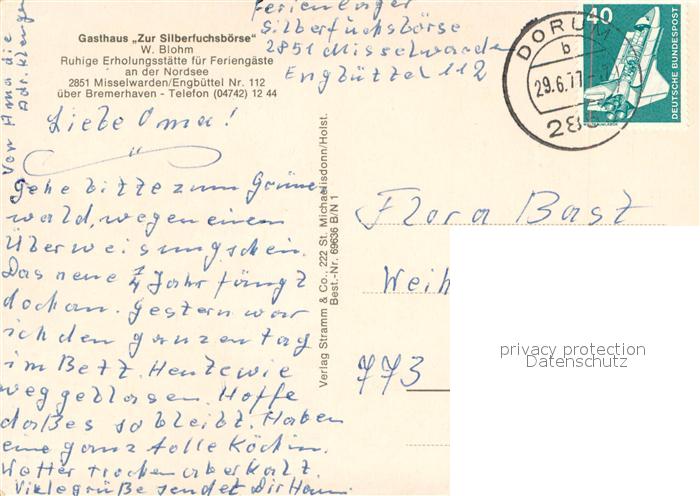 Gasthaus „Zur Silberfuchsbörse"
W. Blohm
Ruhige Erholungsstätte für Feriengäste
an der Nordsee
2851 Misselwarden/Engbüttel Nr. 112
über Bremerhaven - Telefon (04742) 12 44
Ferienlager
Silberfuchsbörse
2851 Misselwarden
Engbüttel 112
Liebe Oma!
Gehe bitte zum Grüne
wald, wegen einem
Überweisungschein.
Das neue 1/4 Jahr fängt
doch an. Gestern war
ich den ganzen tag
im Bett. Heute wie
weggeblasen. Hoffe
daßes so bleibt. Haben
eine ganz tolle Köchin.
Wetter trocken aber kalt.
Viele grüße sendet Dir
Verlag Stramm & Co., 222 St. Michaelisdonn/Holst.
Best.-Nr. 69636 B/N 1
DORUM
b
29.6.77
285
40
DEUTSCHE BUNDESPOST
Flora Bast
Weih
773
privacy protection
Datenschutz